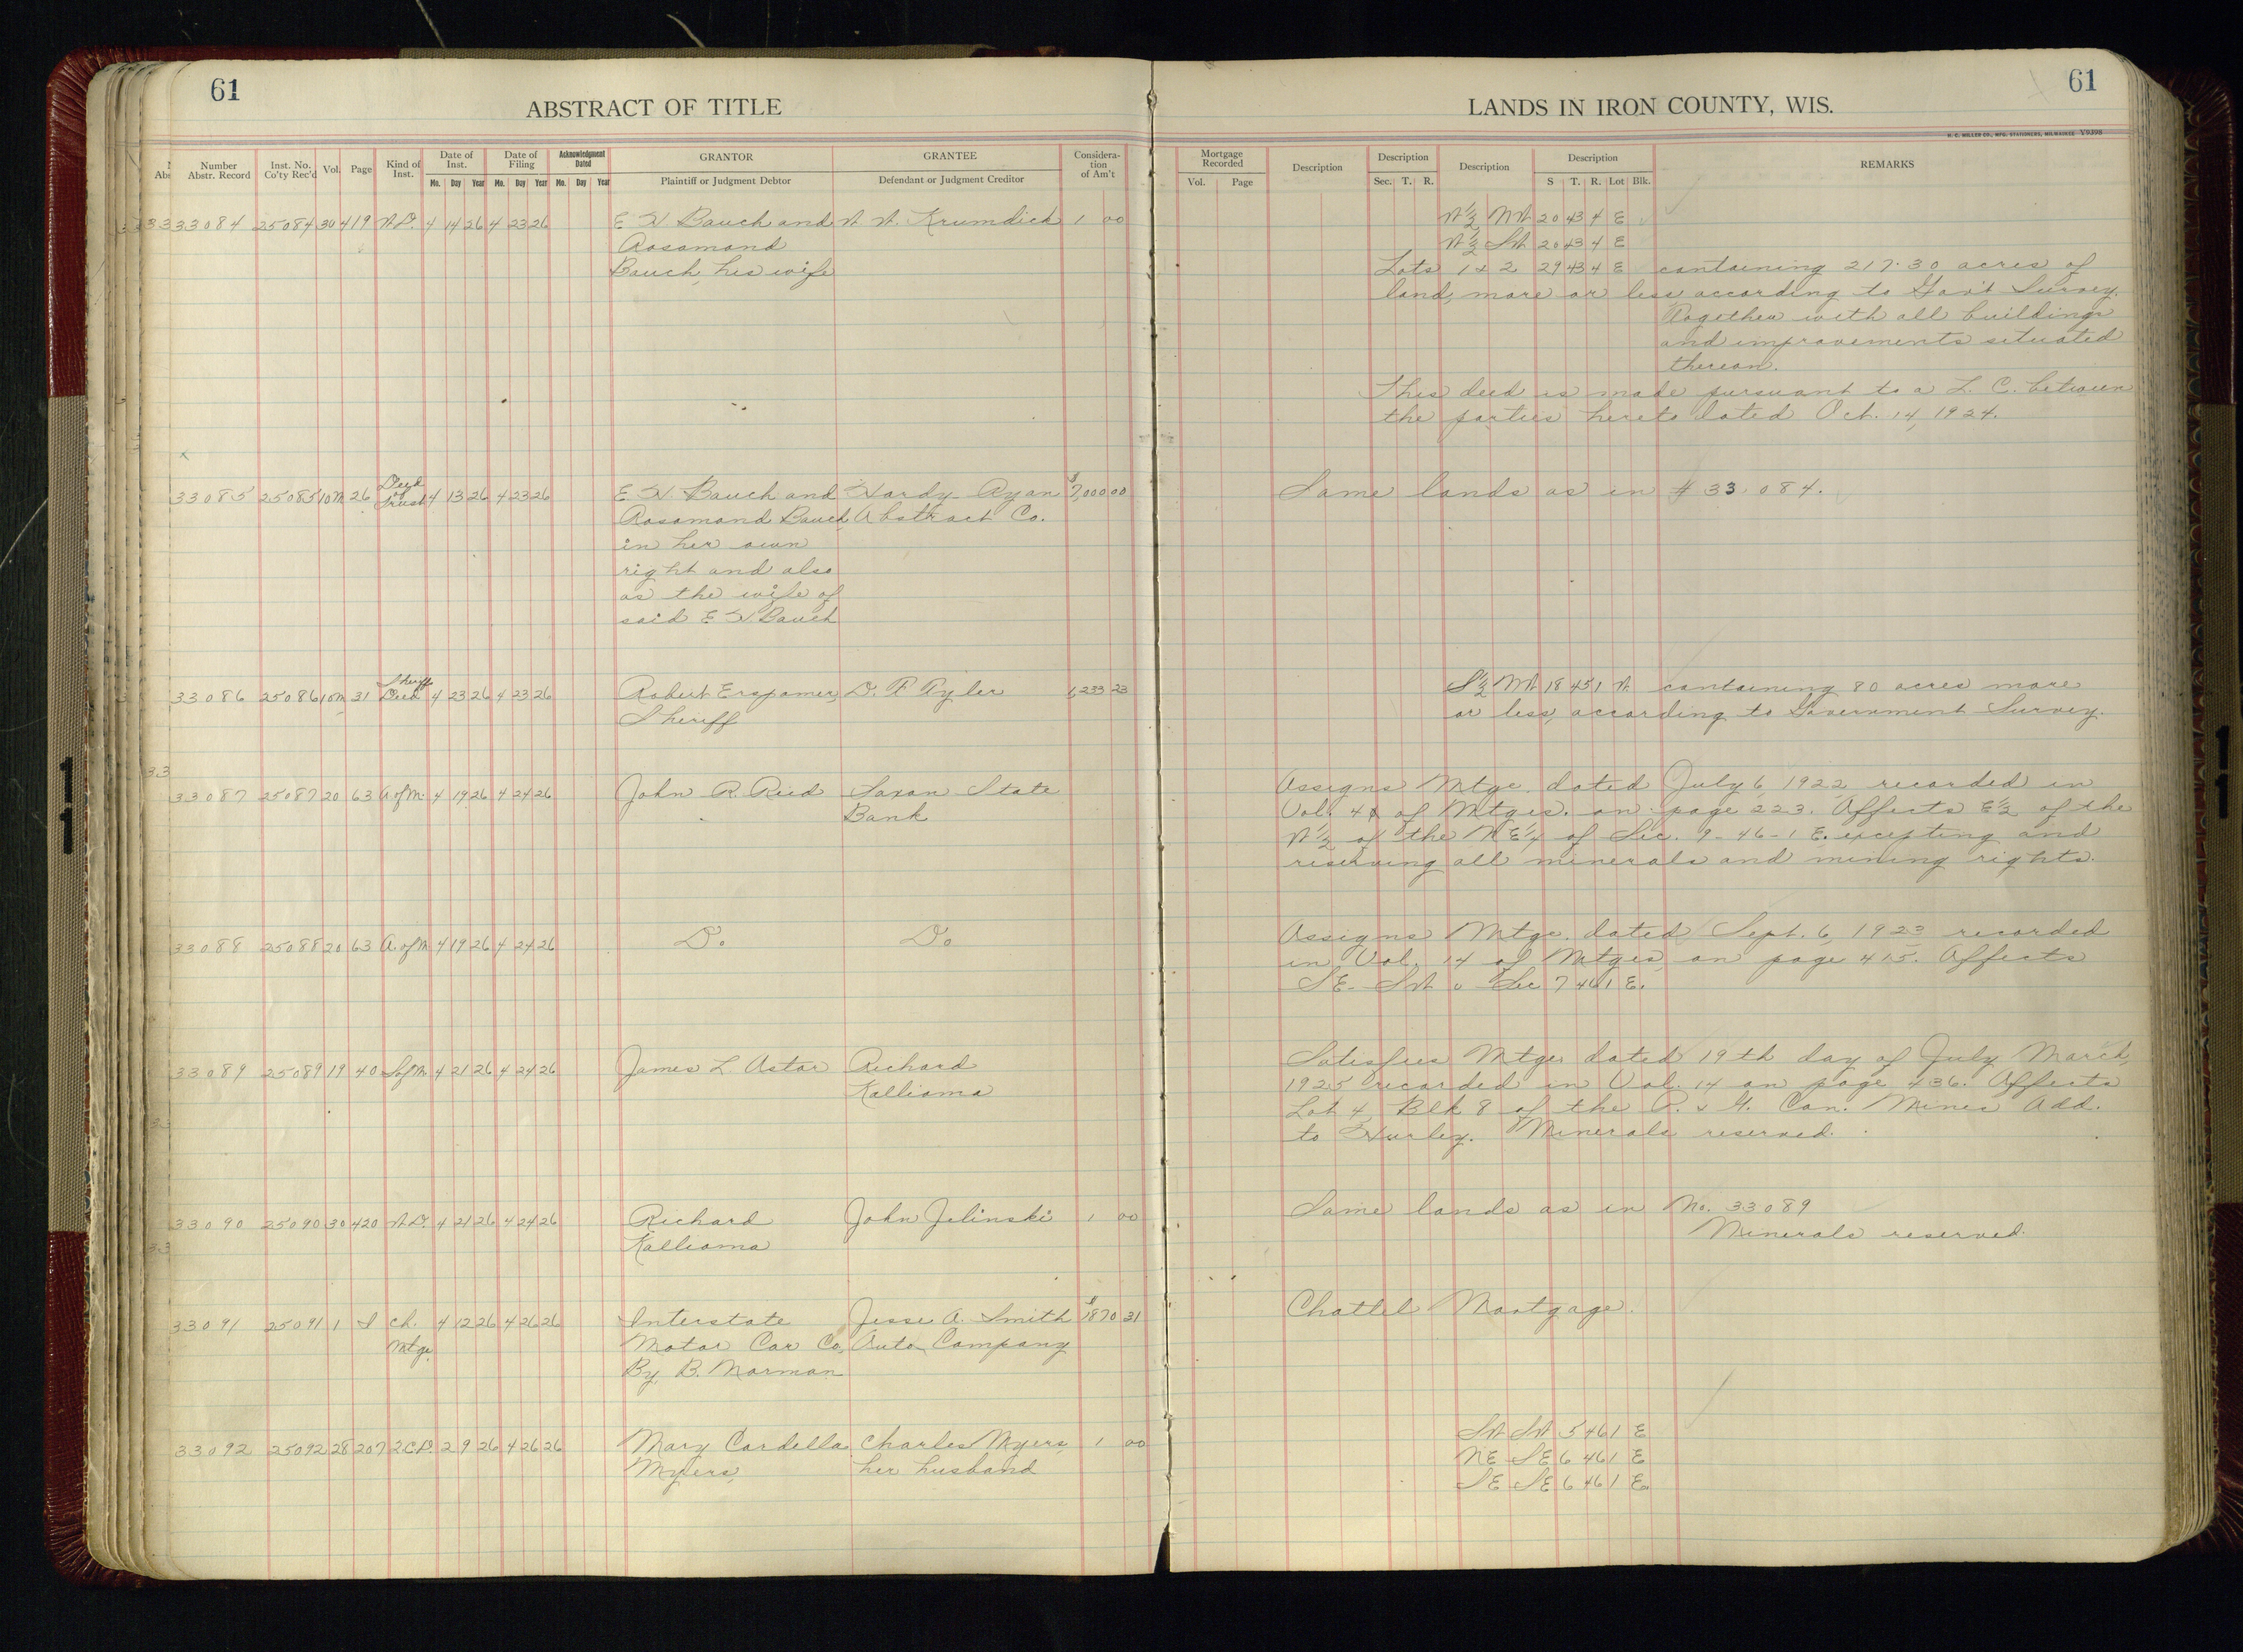 61
ABSTRACT OF TITLE
Number
Abstr. Record
Inst. No.
Co'ty Rec'd
Vol.
Page
Kind of
Inst.
Date of
Inst.
Mo. Day Year
Date of
Filing
Mo. Day Year
Acknowledgment
Dated
Mo. Day Year
GRANTOR
Plaintiff or Judgment Debtor
GRANTEE
Defendant or Judgment Creditor
Considera-
tion
or Am't
33084 25084 30 419 W.D. 4 14 26 4 23 26 E W Bauch and W. W. Krumdick 1 00
Rosamond
Bauch, his wife
33085 25085 10M 26 Deed of Trust 4 13 26 4 23 26 E W. Bauch and Hardy-Ryan $7,000 00
Rosamond Bauch, Abstract Co.
in her own
right and also
as the wife of
said E W Bauch
33086 25086 10M 31 Sheriff Deed 4 23 26 4 23 26 Robert Erspamer, D. F. Tyler 1,233 23
Sheriff
33087 25087 20 63 A of M. 4 19 26 4 24 26 John R. Reid Saxon State
Bank
33088 25088 20 63 A. of M 4 19 26 4 24 26 Do Do
33089 25089 19 40 S of M 4 21 26 4 24 26 James L. Astor Richard
Kallioma
33090 25090 30 420 W.D. 4 21 26 4 24 26 Richard John Jelinski 1 00
Kallioma
33091 25091 1 I Ch. 4 12 26 4 26 26 Interstate Jesse A. Smith $1870 31
Mtge. Motor Car Co, Auto Company
By B. Morman
33092 25092 28 207 2.C.D. 2 9 26 4 26 26 Mary Cardella Charles Myers, 1 00
Myers, her husband
LANDS IN IRON COUNTY, WIS.
61
H. C. MILLER CO., MFG. STATIONERS, MILWAUKEE Y9398
Mortgage
Recorded
Vol. Page
Description
Description
Sec. T. R.
Description
Description
S T. R. Lot Blk.
REMARKS
W½ NW 20 43 4 E
W½ SW 20 43 4 E
Lots 1 & 2 29 43 4 E containing 217.30 acres of
land, more or less, according to Gov't Survey.
Together with all buildings
and improvements situated
thereon.
This deed is made pursuant to a L. C. between
the parties hereto dated Oct. 14, 1924.
Same lands as in # 33,084.
S½ NW 18 45 1 W containing 80 acres more
or less, according to Government Survey.
Assigns Mtge. dated July 6, 1922 recorded in
Vol. 4 of Mtges. on page 223. Affects E½ of the
W½ of the NE¼ of Sec. 9-46-1 E. excepting and
reserving all minerals and mining rights.
Assigns Mtge. dated Sept. 6, 1923 recorded
in Vol. 14 of Mtges, on page 415. Affects
SE-SW o Sec 7 46 1 E.
Satisfies Mtge. dated 19th day of July March,
1925 recorded in Vol. 14 on page 436. Affects
Lot 4, Blk 8 of the P. & G. Con. Mines Add.
to Hurley. Minerals reserved.
Same lands as in No. 33089
Minerals reserved.
Chattel Mortgage.
SW SW 5 46 1 E
NE SE 6 46 1 E
SE SE 6 46 1 E.